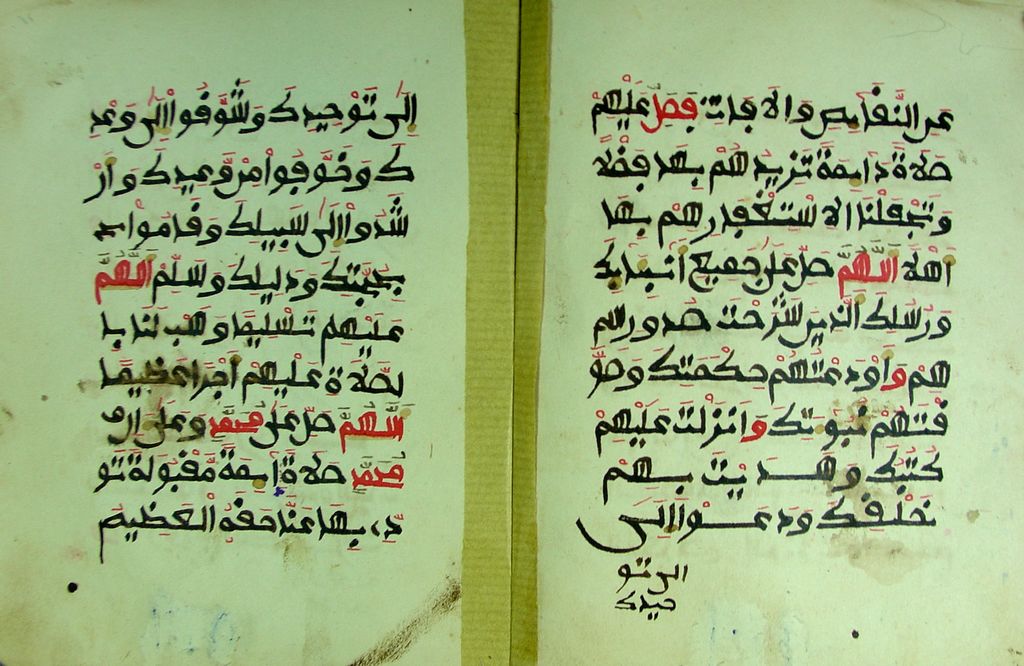 عن النقايص والافات فصل عليهم
صلاة دايمة تزيدهم بها فضلا
وتجعلنا الاستغفارهم بها
اهلا اللهم صل على جميع انبيايك
ورسلك الذين شرحت صدورهم
هم واودعتهم حكمتك وطو
قتهم نبوتك وانزلت عليهم
كتبك وهديت بهم
خلقك ودعوا الى
الى تو
حيدك
الى توحيدك وشوقوا الى وعد
ك وخوفوا من وعيدك وار
شدوا الى سبيلك وقاموا
بحجتك ودليلك وسلم اللهم
عليهم تسليما وهب لنا با
لصلاة عليهم اجرا عظيما
اللهم صل على محمد وعلى ال
محمد صلاة دايمة مقبولة تو
دي بها عنا حقه العظيم